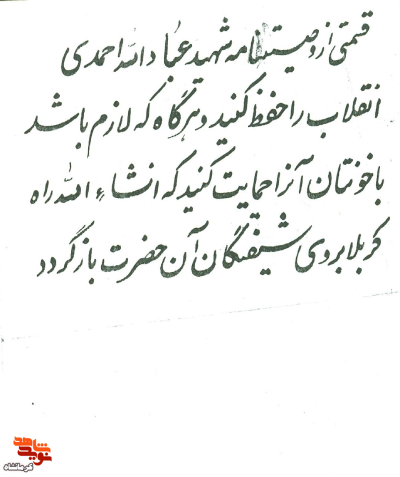 قسمتی از وصیتنامه شهید عباد الله احمدی
انقلاب را حفظ کنید و هرگاه که لازم باشد
با خونتان آنرا حمایت کنید که انشاء الله راه
کربلا بروی شیفتگان آن حضرت بازگردد
نوید شاهد
کرمانشاه